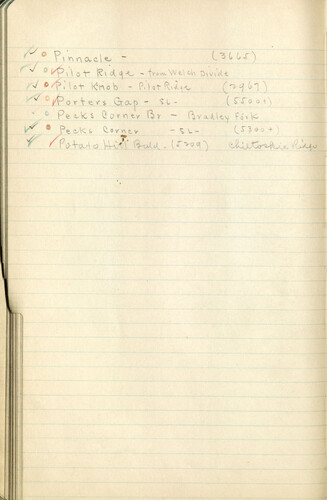 Pinnacle - (3665)
Pilot Ridge - from Welch Divide
Pilot Knob - Pilot Ridge (2967)
Porters Gap - SL - (5500±)
Pecks Corner Br - Bradley Fork
Pecks Corner - SL - (5300±)
Potato Hill Bald. (5200) Ridge